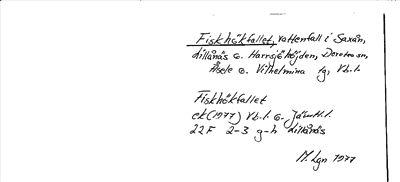 Fiskhökfallet, vattenfall i Saxån,
Lillånäs o. Harrsjöhöjden, Dorotea sn,
Åsele o. Vilhelmina tg, Vb.l.
Fiskhökfallet
ek (1977) Vb.l. o. Jämtl.l.
22F 2-3 g-h Lillånäs
M. Lgn 1977